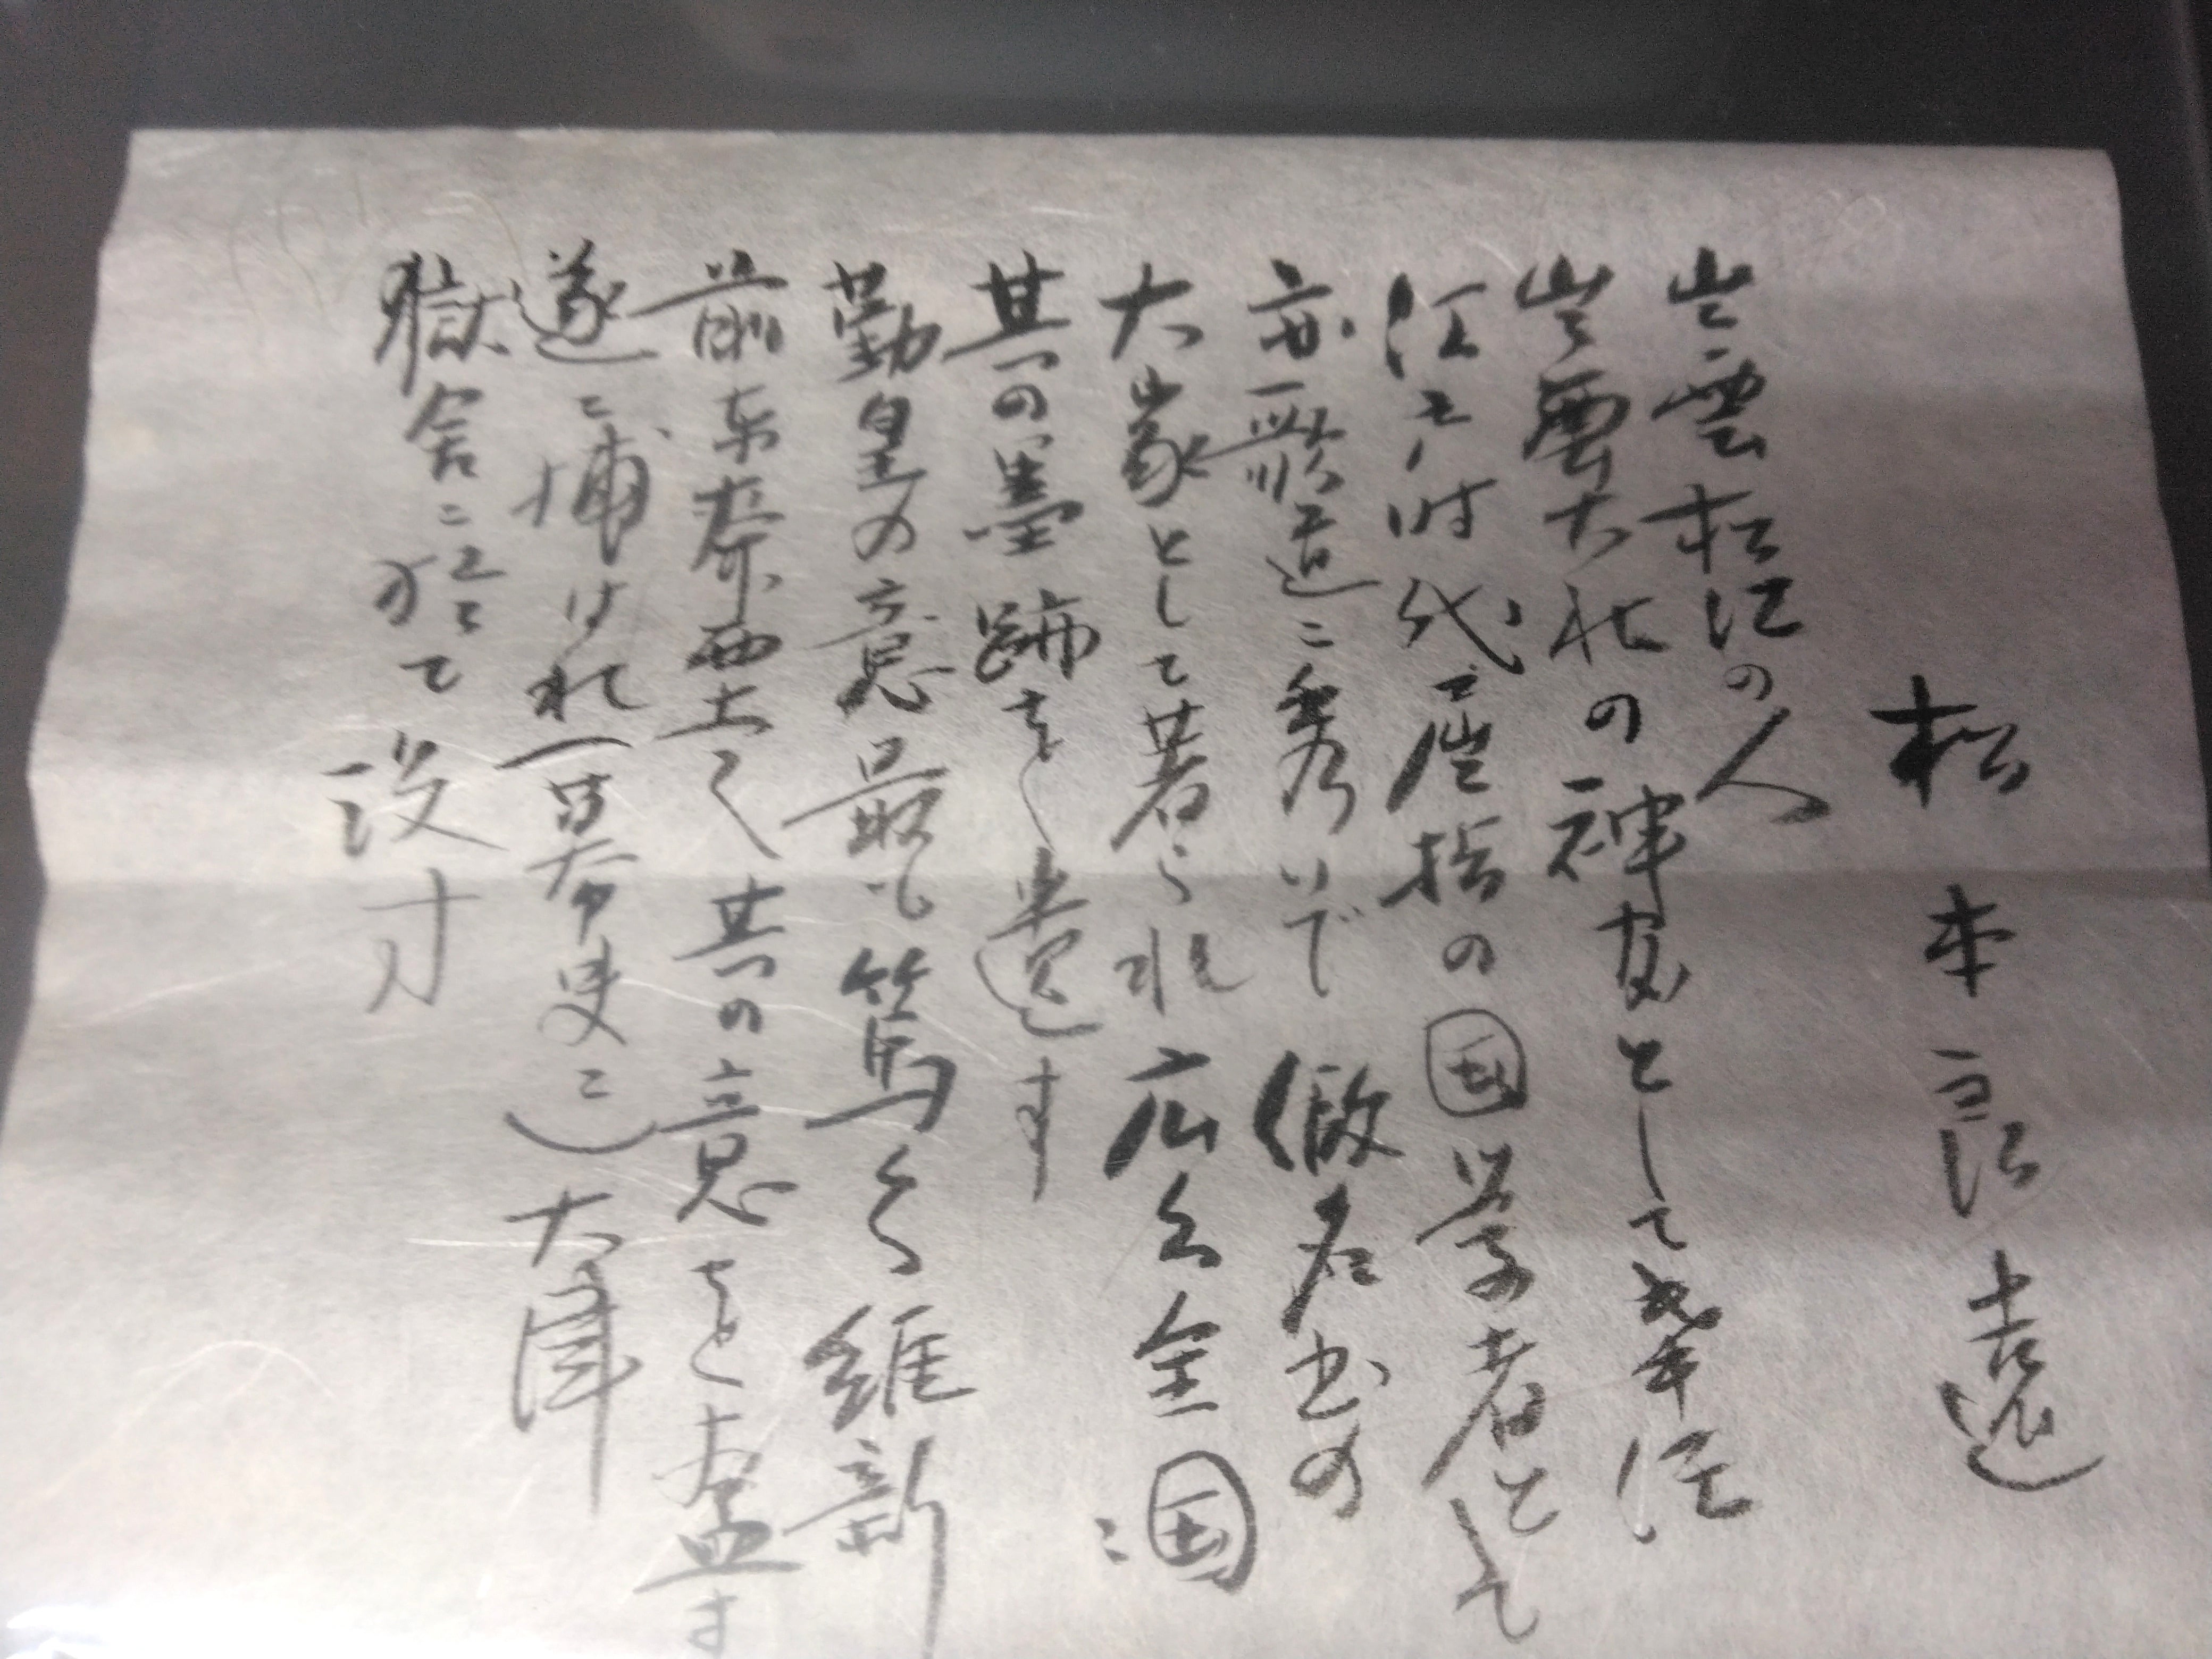 松本良遠
出雲松江の人
出雲大社の神官として奉仕
江戸時代に屈指の国学者として
亦歌道に秀いで假名書の
大家として著られ広く全国に
其の墨跡を遺す
勤皇の意最も篤く維新
前東奔西走く其の意を盡す
遂に捕はれ幕吏に
獄舎に於て没す